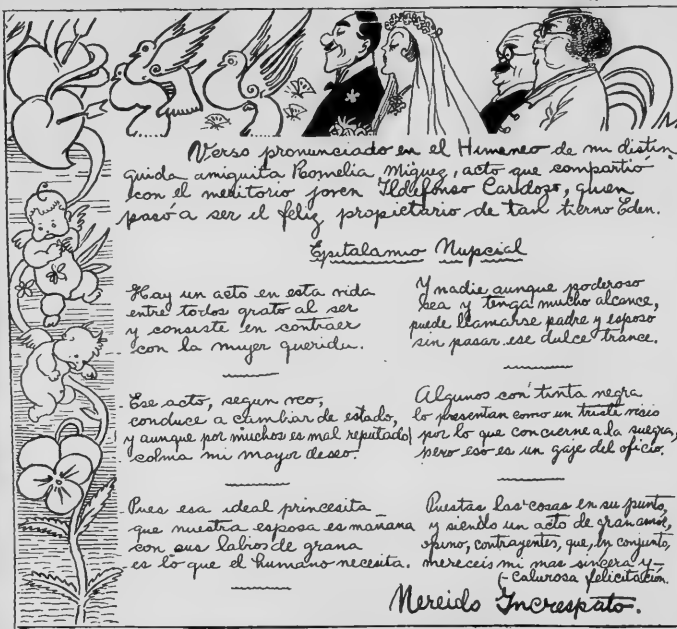 Verso pronunciado en el Himeneo de mi distin
guida amiguita Romelia Míguez, acto que compartió
con el meritorio joven Ildefonso Cardozo, quien
pasó a ser el feliz propietario de tan tierno Eden.
Epitalamio Nupcial
Hay un acto en esta vida
entre todos grato al ser
y consiste en contraer
con la mujer querida.
Ese acto, segun veo,
conduce a cambiar de estado,
y aunque por muchos es mal reputado
colma mi mayor deseo.
Pues esa ideal princesita
que nuestra esposa es mañana
con sus labios de grana
es lo que el humano necesita.
Y nadie aunque poderoso
sea y tenga mucho alcance,
puede llamarse padre y esposo
sin pasar ese dulce trance.
Algunos con tinta negra
lo presentan como un triste vicio
por lo que concierne a la suegra,
pero eso es un gaje del oficio.
Puestas las cosas en su punto,
y siendo un acto de gran amor,
opino, contrayentes, que, en conjunto,
mereceis mi mas sincera y-
(-calurosa felicitación.
Nereido Increspato.